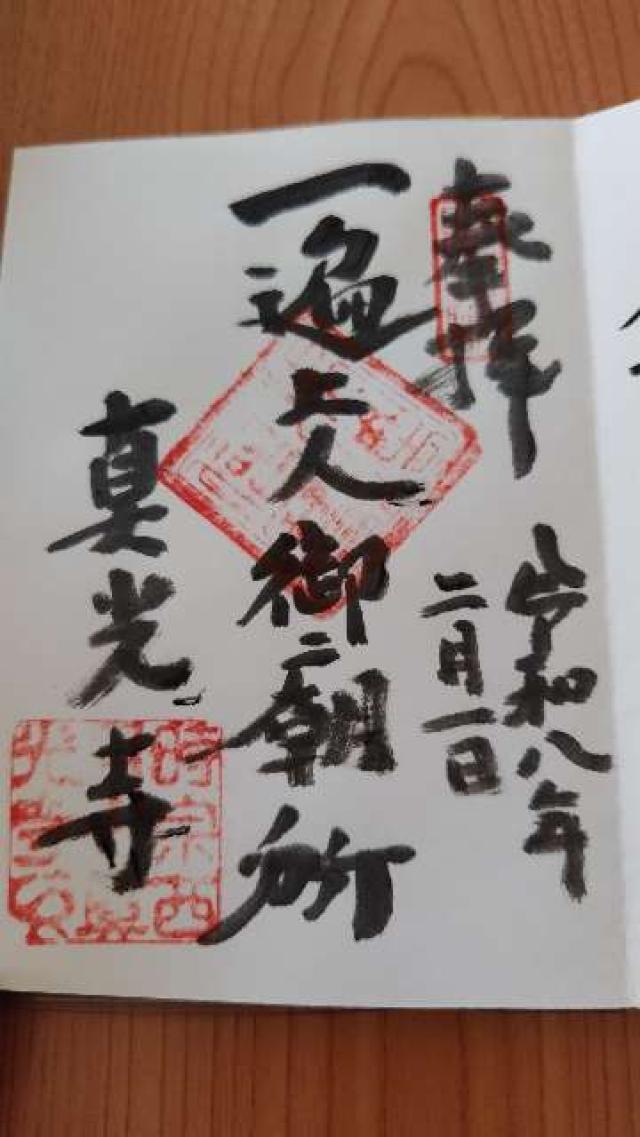 奉拝
令和八年
二月一日
一遍上人御廟所
真光寺